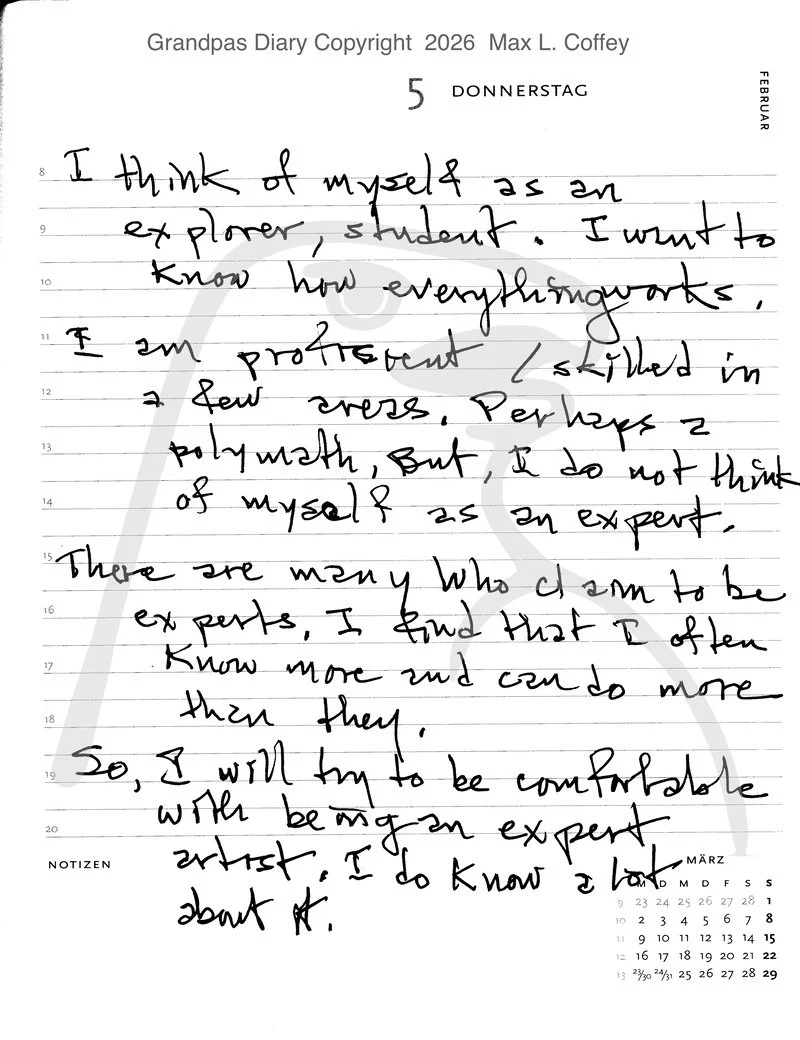 Grandpas Diary Copyright 2026 Max L. Coffey
5 DONNERSTAG
FEBRUAR
8 I think of myself as an
9 explorer, student. I want to
10 know how everything works.
11 I am proficient / skilled in
12 a few areas. Perhaps a
13 polymath, But, I do not think
14 of myself as an expert.
15 There are many who claim to be
16 experts. I find that I often
17 know more and can do more
18 than they.
19 So, I will try to be comfortable
with being an expert
20
NOTIZEN
artist. I do know a lot
about it.
MÄRZ
M D M D F S S
9 23 24 25 26 27 28 1
10 2 3 4 5 6 7 8
11 9 10 11 12 13 14 15
12 16 17 18 19 20 21 22
13 23/30 24/31 25 26 27 28 29